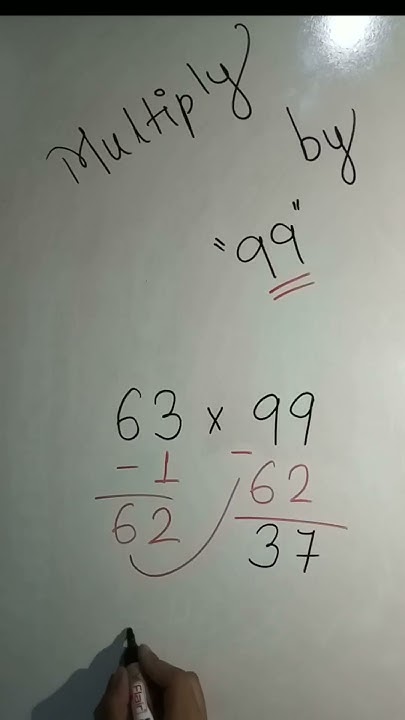 Multiply by
"99"
63 × 99
- 1 - 62
62 37